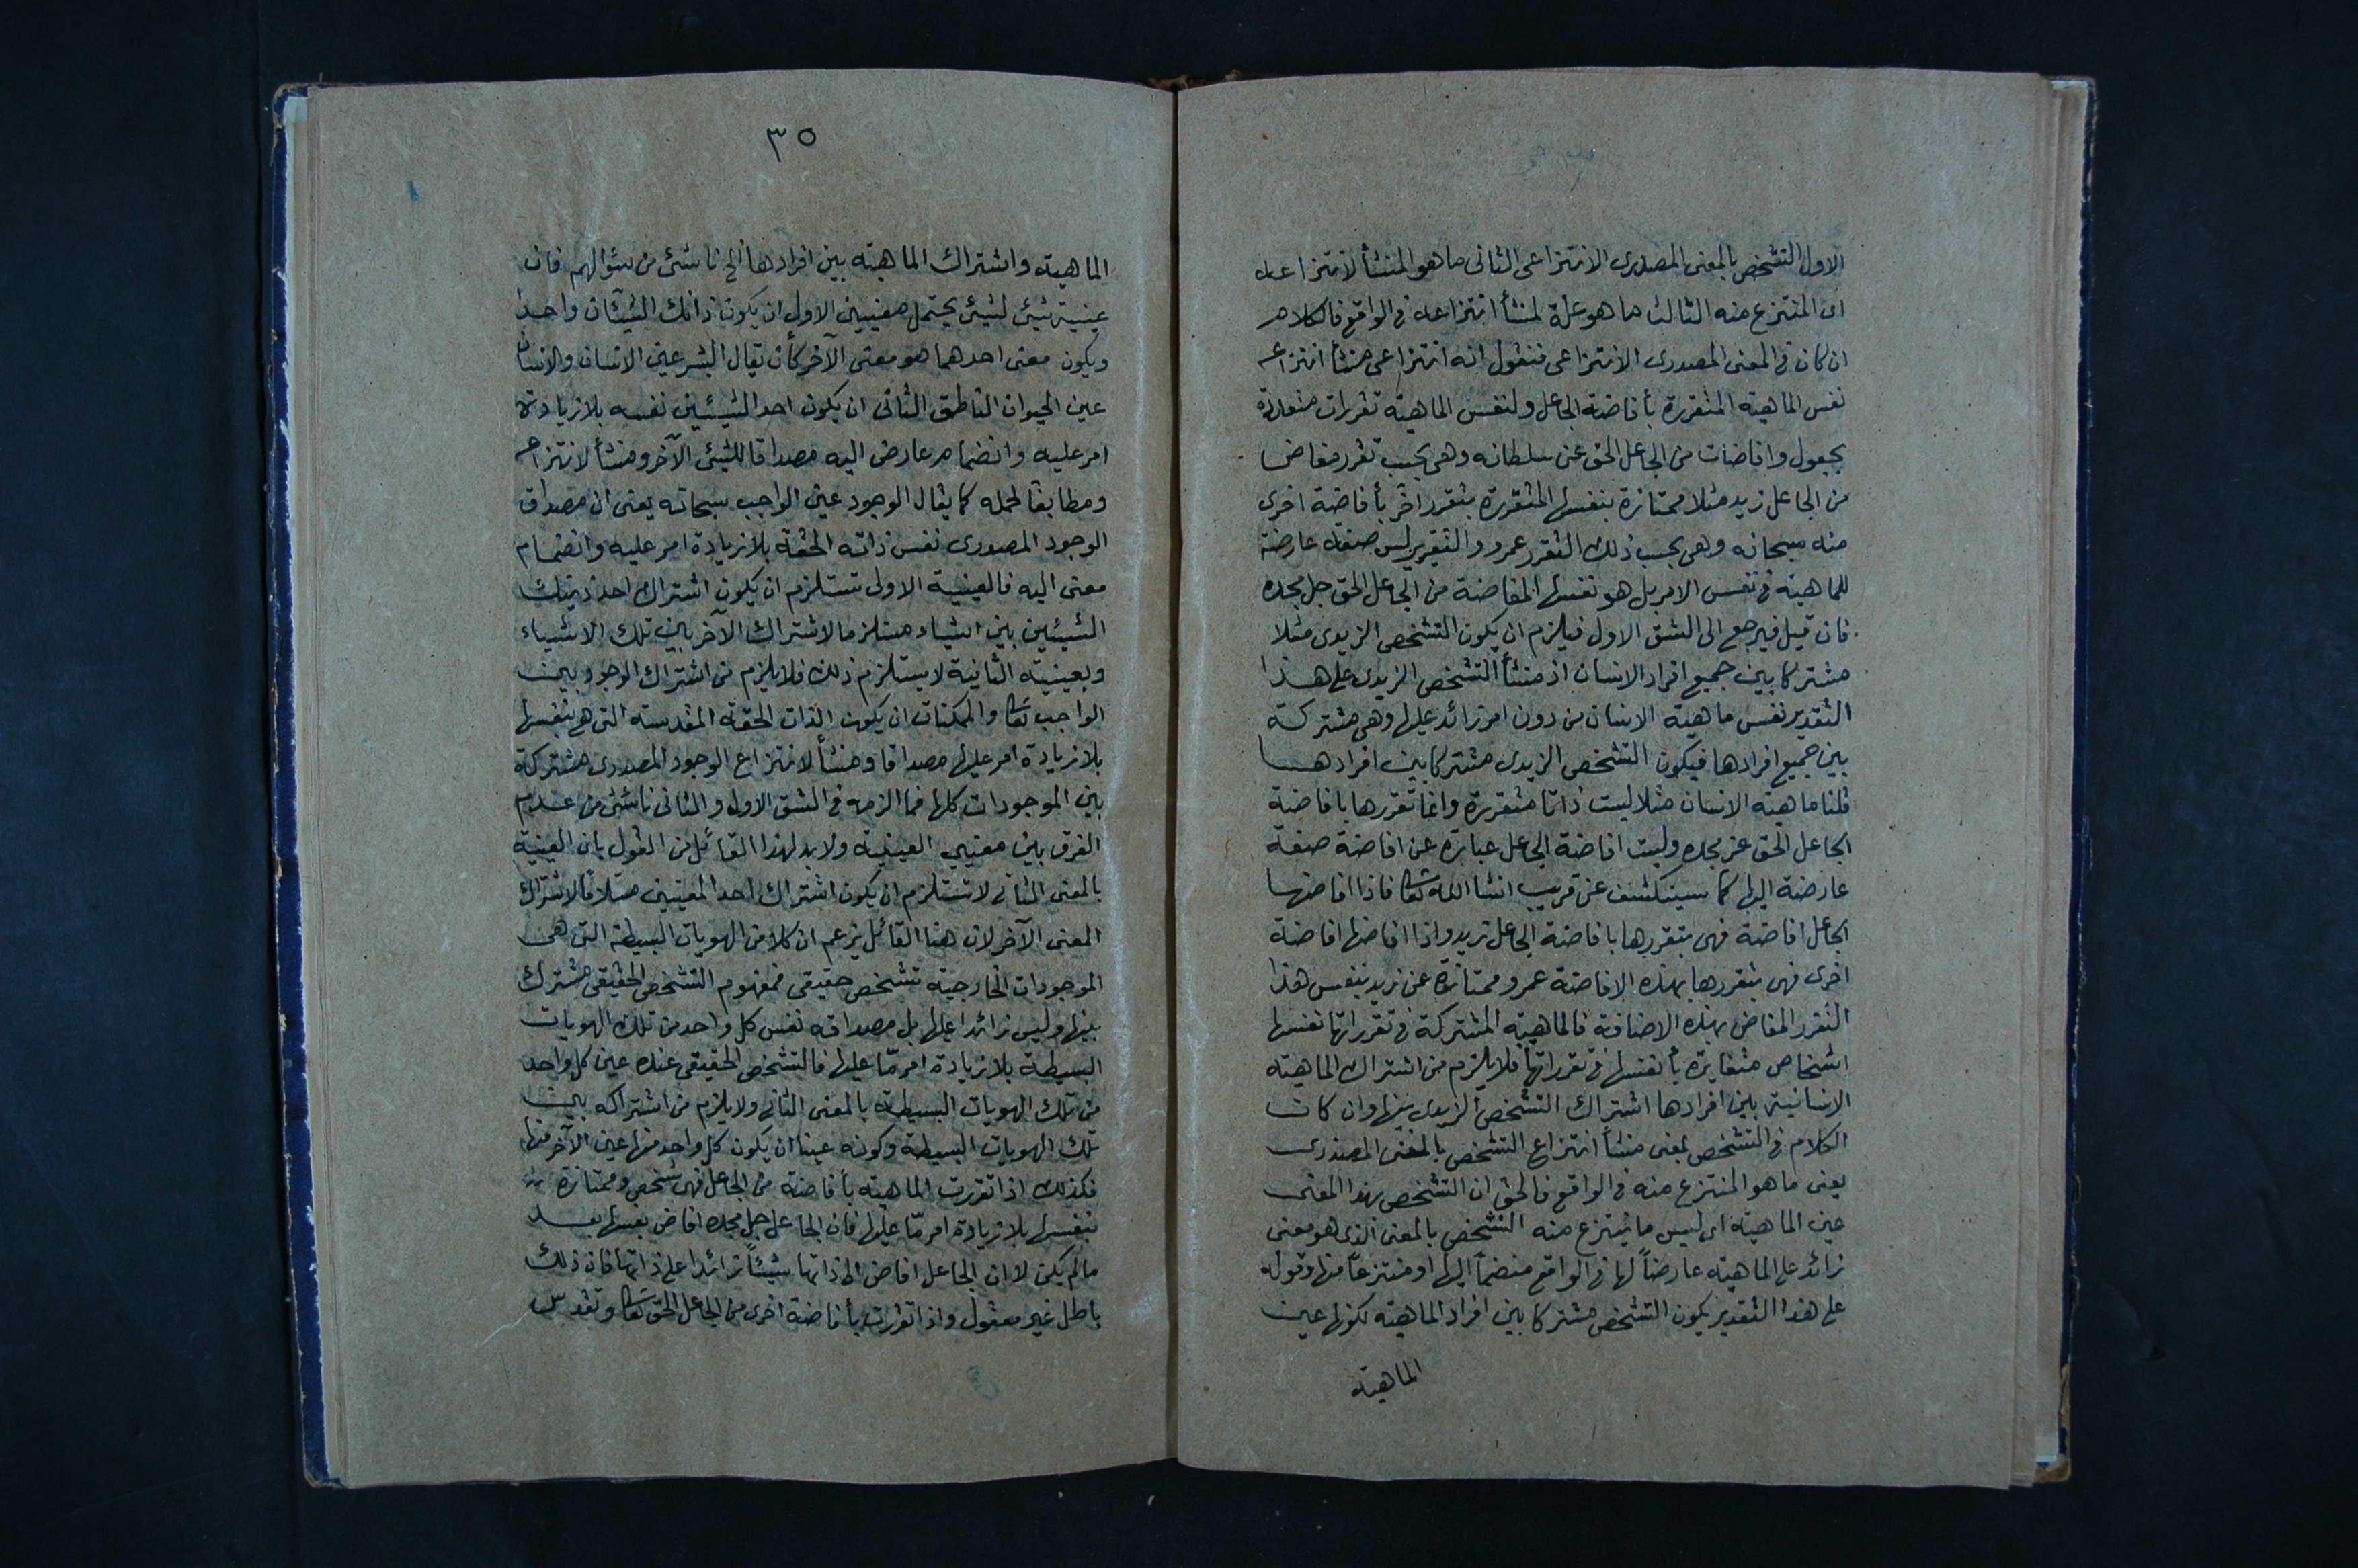 الاول التشخص بالمعنى المصدرى الانتزاعى الثانى ما هو المنشأ لانتزاعه
اى المنتزع منه الثالث ما هو علة لمنشأ انتزاعه فى الواقع فالكلام
ان كان فى المعنى المصدرى الانتزاعى فنقول انه انتزاعى منشأ انتزاعه
نفس الماهية المتقررة بأفاضة الجاعل ولنفس الماهية تقررات متعددة
بجعول وافاضات من الجاعل الحق عن سلطانه وهى بحسب تقرر مفاض
من الجاعل زيد مثلا ممتازة بنفسها المتقررة بتقرر آخر بأفاضة اخرى
منه سبحانه وهى بحسب ذلك التقرر عمرو والتقرير ليس صفة عارضة
للماهية فى نفس الامر بل هو نفسها المفاضة من الجاعل الحق جل مجده
فان قيل فيرجع الى الشق الاول فيلزم ان يكون التشخص الزيدى مثلا
مشتركا بين جميع افراد الانسان اذ منشأ التشخص الزيدى على هذا
التقدير نفس ماهية الانسان من دون امر زائد عليها وهى مشتركة
بين جميع افرادها فيكون التشخص الزيدى مشتركا بين افرادها
قلنا ماهية الانسان مثلا ليست ذاتا متقررة وانما تقررها بافاضة
الجاعل الحق عز مجده وليت افاضة الجاعل عبارة عن افاضة صفة
عارضة اليها كما سينكشف عن قريب انشا الله تعالى فاذا افاضها
الجاعل افاضة فهى بتقررها بافاضة الجاعل زيد واذا افاضها افاضة
اخرى فهى بتقررها بهذه الافاضة عمرو ممتازة عن زيد بنفس هذا
التقرر المفاض بهذه الاضافة فالماهية المشتركة فى تقرراتها نفسها
اشخاص متغايرة بأنفسها فى تقرراتها فلا يلزم من اشتراك الماهية
الانسانية بين افرادها اشتراك التشخص الزيدى بينها وان كان
الكلام فى التشخص بمعنى منشأ انتزاع التشخص بالمعنى المصدرى
يعنى ما هو المنتزع منه فى الواقع فالحق ان التشخص بهذا المعنى
عين الماهية اى ليس ما ينتزع منه التشخص بالمعنى الذى هو معنى
زائد على الماهية عارضاً لها فى الواقع منضماً اليها او منتزعاً منها وقوله
على هذا التقدير يكون التشخص مشتركا بين افراد الماهية لكونها عين
الماهية
٣٥
الماهية واشتراك الماهية بين افرادها الخ ناشئ من سئوالهم فان
عينية شئ لشيئ يحتمل معنيين الاول ان يكون ذانك الشيئان واحدا
ويكون معنى احدهما هو معنى الآخر كأن يقال البشر عين الانسان والانسان
عين الحيوان الناطق الثانى ان يكون احد الشيئين نفسه بلا زيادة
امر عليه وانضمام عارض اليه مصداقا للشيئ الآخر ومنشأ لانتزاعه
ومطابقا لحمله كما يقال الوجود عين الواجب سبحانه يعنى ان مصداق
الوجود المصدرى نفس ذاته الحقة بلا زيادة امر عليه وانضمام
معنى اليه فالعينية الاولى تستلزم ان يكون اشتراك احد ذينك
الشيئين بين اشياء مستلزما لاشتراك الآخر بين تلك الاشياء
وبعينية الثانية لا يستلزم ذلك فلا يلزم من اشتراك الوجود بين
الواجب تعالى والممكنات ان يكون الذات الحقة المقدسة التى هى بنفسها
بلا زيادة امر عليها مصداقا ومنشأ لانتزاع الوجود المصدرى مشتركة
بين الموجودات كلها فما الزمه فى الشق الاول والثانى ناشئ من عدم
الفرق بين معنيى العينية ولا بد لهذا القائل من القول بان العينية
بالمعنى الثانى لا تستلزم ان يكون اشتراك احد المعنيين مستلزما لاشتراك
المعنى الآخر لان هذا القائل يزعم ان كلا من الهويات البسيطة التى هى
الموجودات الخارجية تشخص حقيقى فمفهوم التشخص الحقيقى مشترك
بينها وليس زائدا عليها بل مصداقه نفس كل واحد من تلك الهويات
البسيطة بلا زيادة امر مّا عليها فالتشخص الحقيقى عنده عين كل واحد
من تلك الهويات البسيطة بالمعنى الثانى ولا يلزم من اشتراكه بين
تلك الهويات البسيطة وكونه عينا ان يكون كل واحد منها عين الآخر منها
فكذلك اذا تقررت الماهية بأفاضة من الجاعل فهى شخص وممتازة
بنفسها بلا زيادة امر مّا عليها فان الجاعل جل مجده افاض نفسها بعد
ما لم يكن لا ان الجاعل افاض الى ذاتها شيئاً زائدا على ذاتها فان ذلك
باطل غير معقول واذا تقررت بأفاضة اخرى من الجاعل الحق تعالى وتقدس